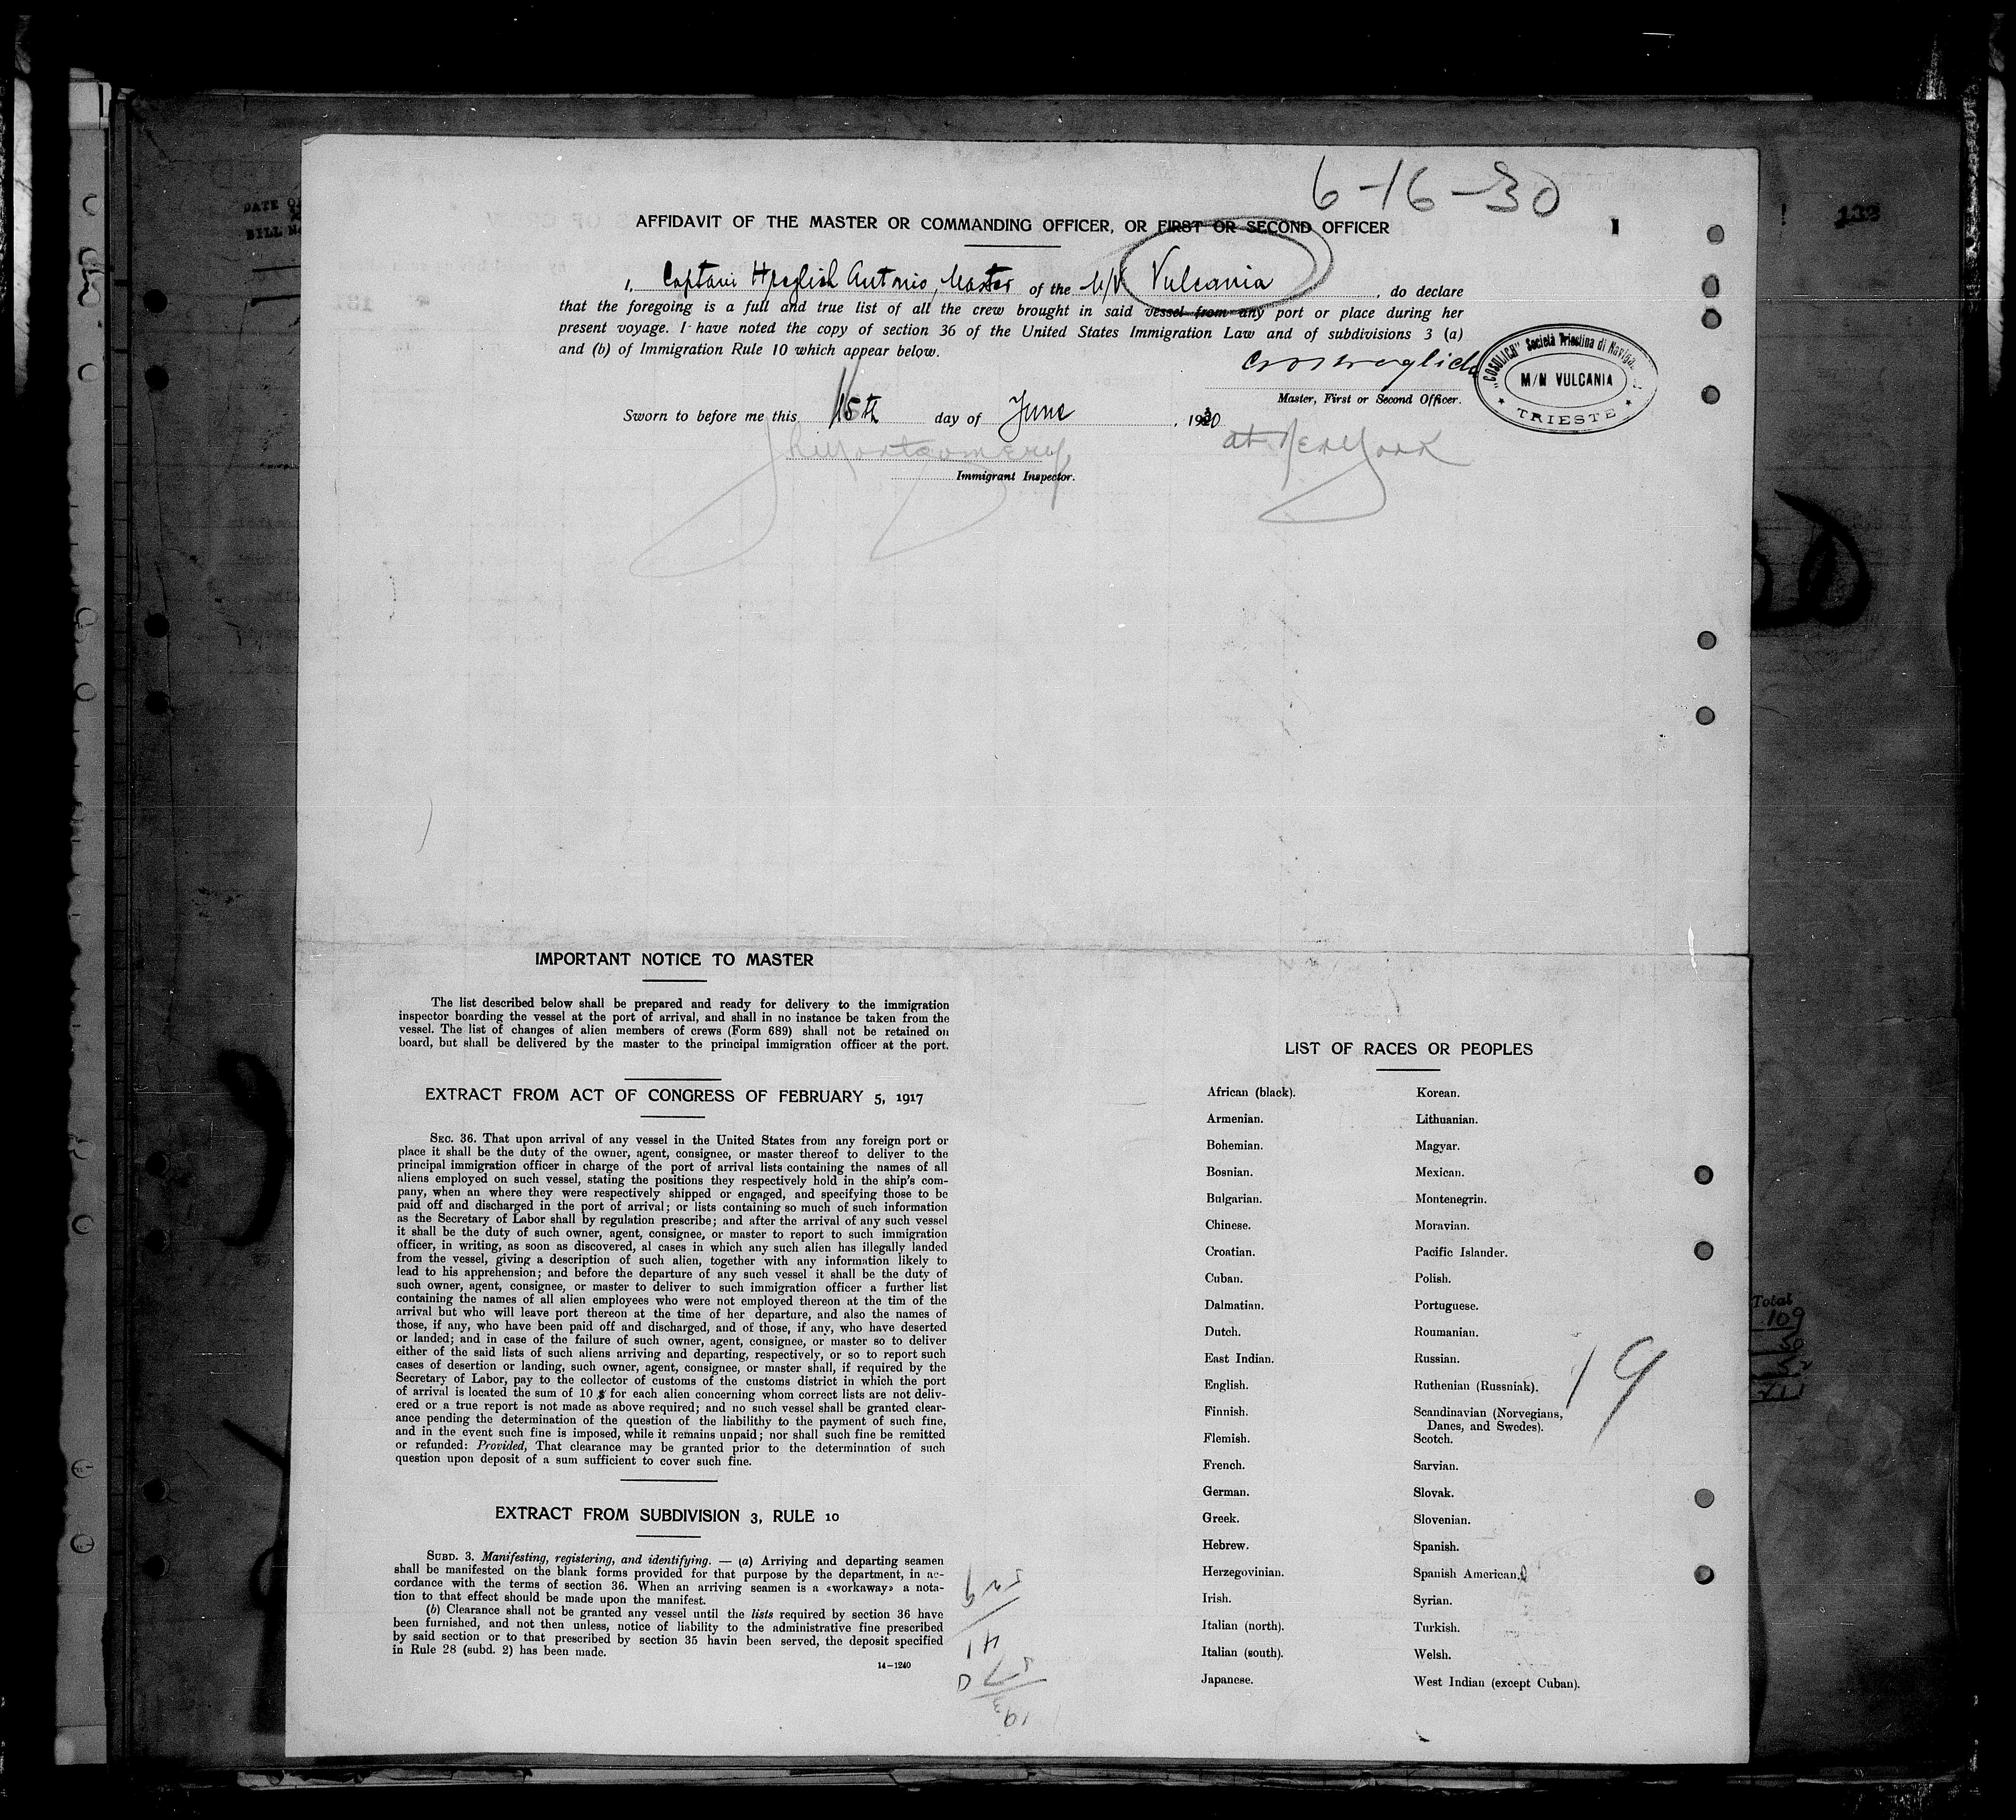 6-16-30
DATE OF
BILL No
132
AFFIDAVIT OF THE MASTER OR COMMANDING OFFICER, OR FIRST OR SECOND OFFICER
I, Captain Antonio, Master of the M/V Vulcania, do declare
that the foregoing is a full and true list of all the crew brought in said vessel from any port or place during her
present voyage. I have noted the copy of section 36 of the United States Immigration Law and of subdivisions 3 (a)
and (b) of Immigration Rule 10 which appear below.
"COSULICH" Società Triestina di Naviga.
M/N VULCANIA
TRIESTE
Master, First or Second Officer.
Sworn to before me this 16th day of June, 1930
at New York
Immigrant Inspector.
IMPORTANT NOTICE TO MASTER
The list described below shall be prepared and ready for delivery to the immigration
inspector boarding the vessel at the port of arrival, and shall in no instance be taken from the
vessel. The list of changes of alien members of crews (Form 689) shall not be retained on
board, but shall be delivered by the master to the principal immigration officer at the port.
EXTRACT FROM ACT OF CONGRESS OF FEBRUARY 5, 1917
SEC. 36. That upon arrival of any vessel in the United States from any foreign port or
place it shall be the duty of the owner, agent, consignee, or master thereof to deliver to the
principal immigration officer in charge of the port of arrival lists containing the names of all
aliens employed on such vessel, stating the positions they respectively hold in the ship's com-
pany, when an where they were respectively shipped or engaged, and specifying those to be
paid off and discharged in the port of arrival; or lists containing so much of such information
as the Secretary of Labor shall by regulation prescribe; and after the arrival of any such vessel
it shall be the duty of such owner, agent, consignee, or master to report to such immigration
officer, in writing, as soon as discovered, al cases in which any such alien has illegally landed
from the vessel, giving a description of such alien, together with any information likely to
lead to his apprehension; and before the departure of any such vessel it shall be the duty of
such owner, agent, consignee, or master to deliver to such immigration officer a further list
containing the names of all alien employees who were not employed thereon at the tim of the
arrival but who will leave port thereon at the time of her departure, and also the names of
those, if any, who have been paid off and discharged, and of those, if any, who have deserted
or landed; and in case of the failure of such owner, agent, consignee, or master so to deliver
either of the said lists of such aliens arriving and departing, respectively, or so to report such
cases of desertion or landing, such owner, agent, consignee, or master shall, if required by the
Secretary of Labor, pay to the collector of customs of the customs district in which the port
of arrival is located the sum of 10 $ for each alien concerning whom correct lists are not deliv-
ered or a true report is not made as above required; and no such vessel shall be granted clear-
ance pending the determination of the question of the liabilithy to the payment of such fine,
and in the event such fine is imposed, while it remains unpaid; nor shall such fine be remitted
or refunded: Provided, That clearance may be granted prior to the determination of such
question upon deposit of a sum sufficient to cover such fine.
EXTRACT FROM SUBDIVISION 3, RULE 10
SUBD. 3. Manifesting, registering, and identifying. — (a) Arriving and departing seamen
shall be manifested on the blank forms provided for that purpose by the department, in ac-
cordance with the terms of section 36. When an arriving seamen is a «workaway» a nota-
tion to that effect should be made upon the manifest.
(b) Clearance shall not be granted any vessel until the lists required by section 36 have
been furnished, and not then unless, notice of liability to the administrative fine prescribed
by said section or to that prescribed by section 35 havin been served, the deposit specified
in Rule 28 (subd. 2) has been made.
14-1240
LIST OF RACES OR PEOPLES
African (black). Korean.
Armenian. Lithuanian.
Bohemian. Magyar.
Bosnian. Mexican.
Bulgarian. Montenegrin.
Chinese. Moravian.
Croatian. Pacific Islander.
Cuban. Polish.
Dalmatian. Portuguese.
Dutch. Roumanian.
East Indian. Russian.
English. Ruthenian (Russniak).
Finnish. Scandinavian (Norvegians,
Danes, and Swedes).
Flemish. Scotch.
French. Sarvian.
German. Slovak.
Greek. Slovenian.
Hebrew. Spanish.
Herzegovinian. Spanish American.
Irish. Syrian.
Italian (north). Turkish.
Italian (south). Welsh.
Japanese. West Indian (except Cuban).
19
Total
109